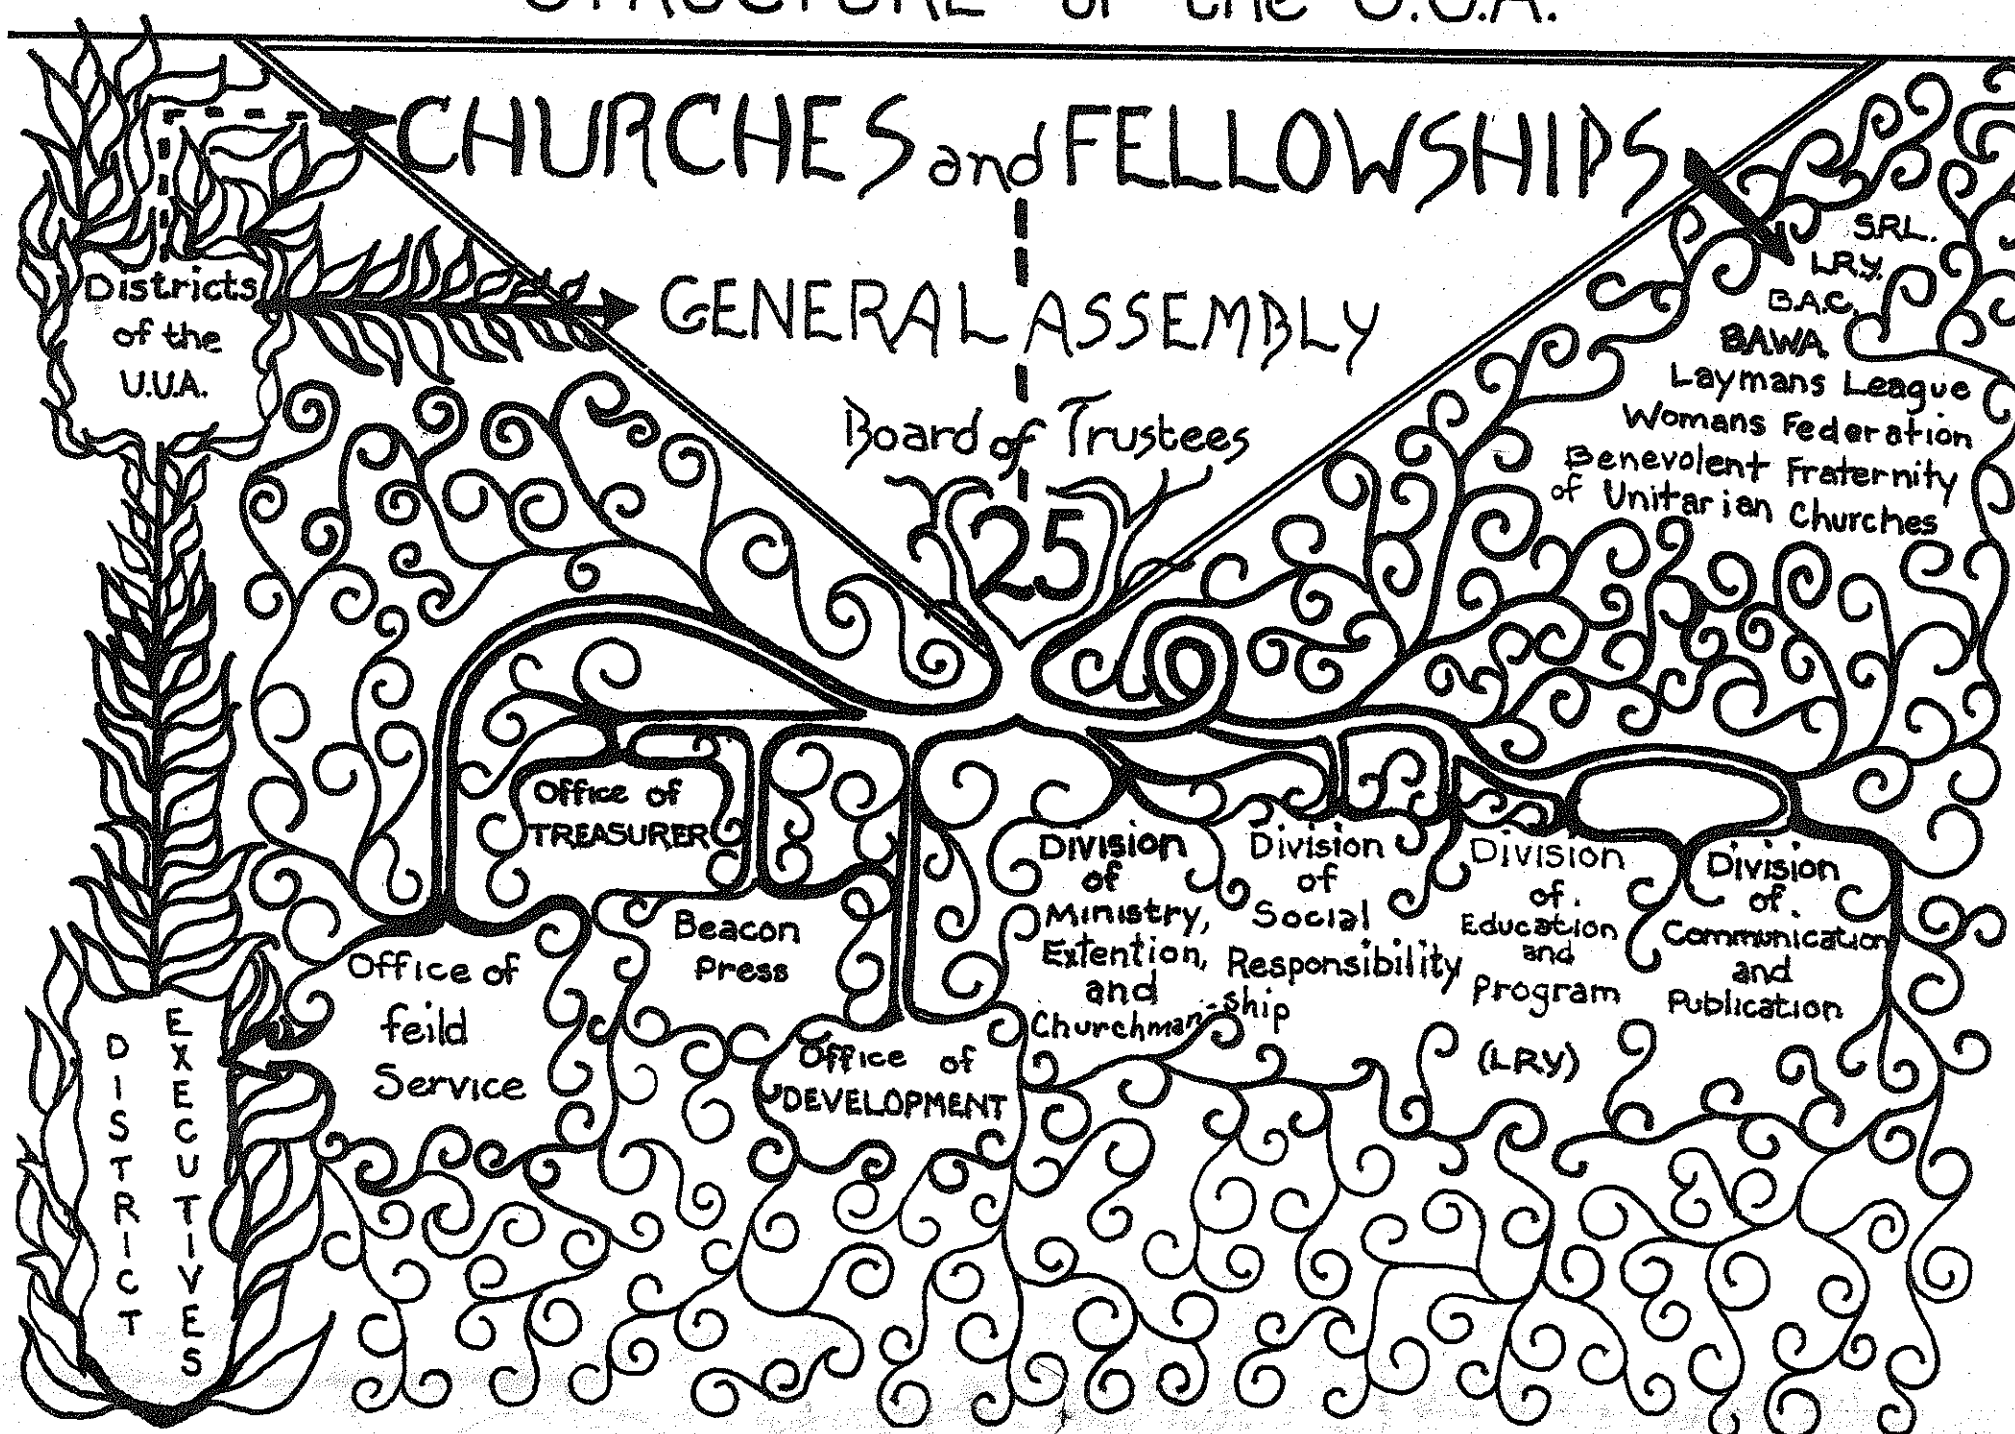 STRUCTURE of the U.U.A.
CHURCHES and FELLOWSHIPS
GENERAL ASSEMBLY
Board of Trustees
25
Districts
of the
U.U.A.
S.R.L.
L.R.Y.
B.A.C.
BAWA
Laymans League
Womans Federation
Benevolent Fraternity
of Unitarian Churches
Office of
TREASURER
Beacon
Press
Office of
feild
Service
Office of
DEVELOPMENT
Division
of
Ministry,
Extention,
and
Churchman-ship
Division
of
Social
Responsibility
Division
of.
Education
and
Program
(LRY)
Division
of.
Communication
and
Publication
DISTRICT
EXECUTIVES